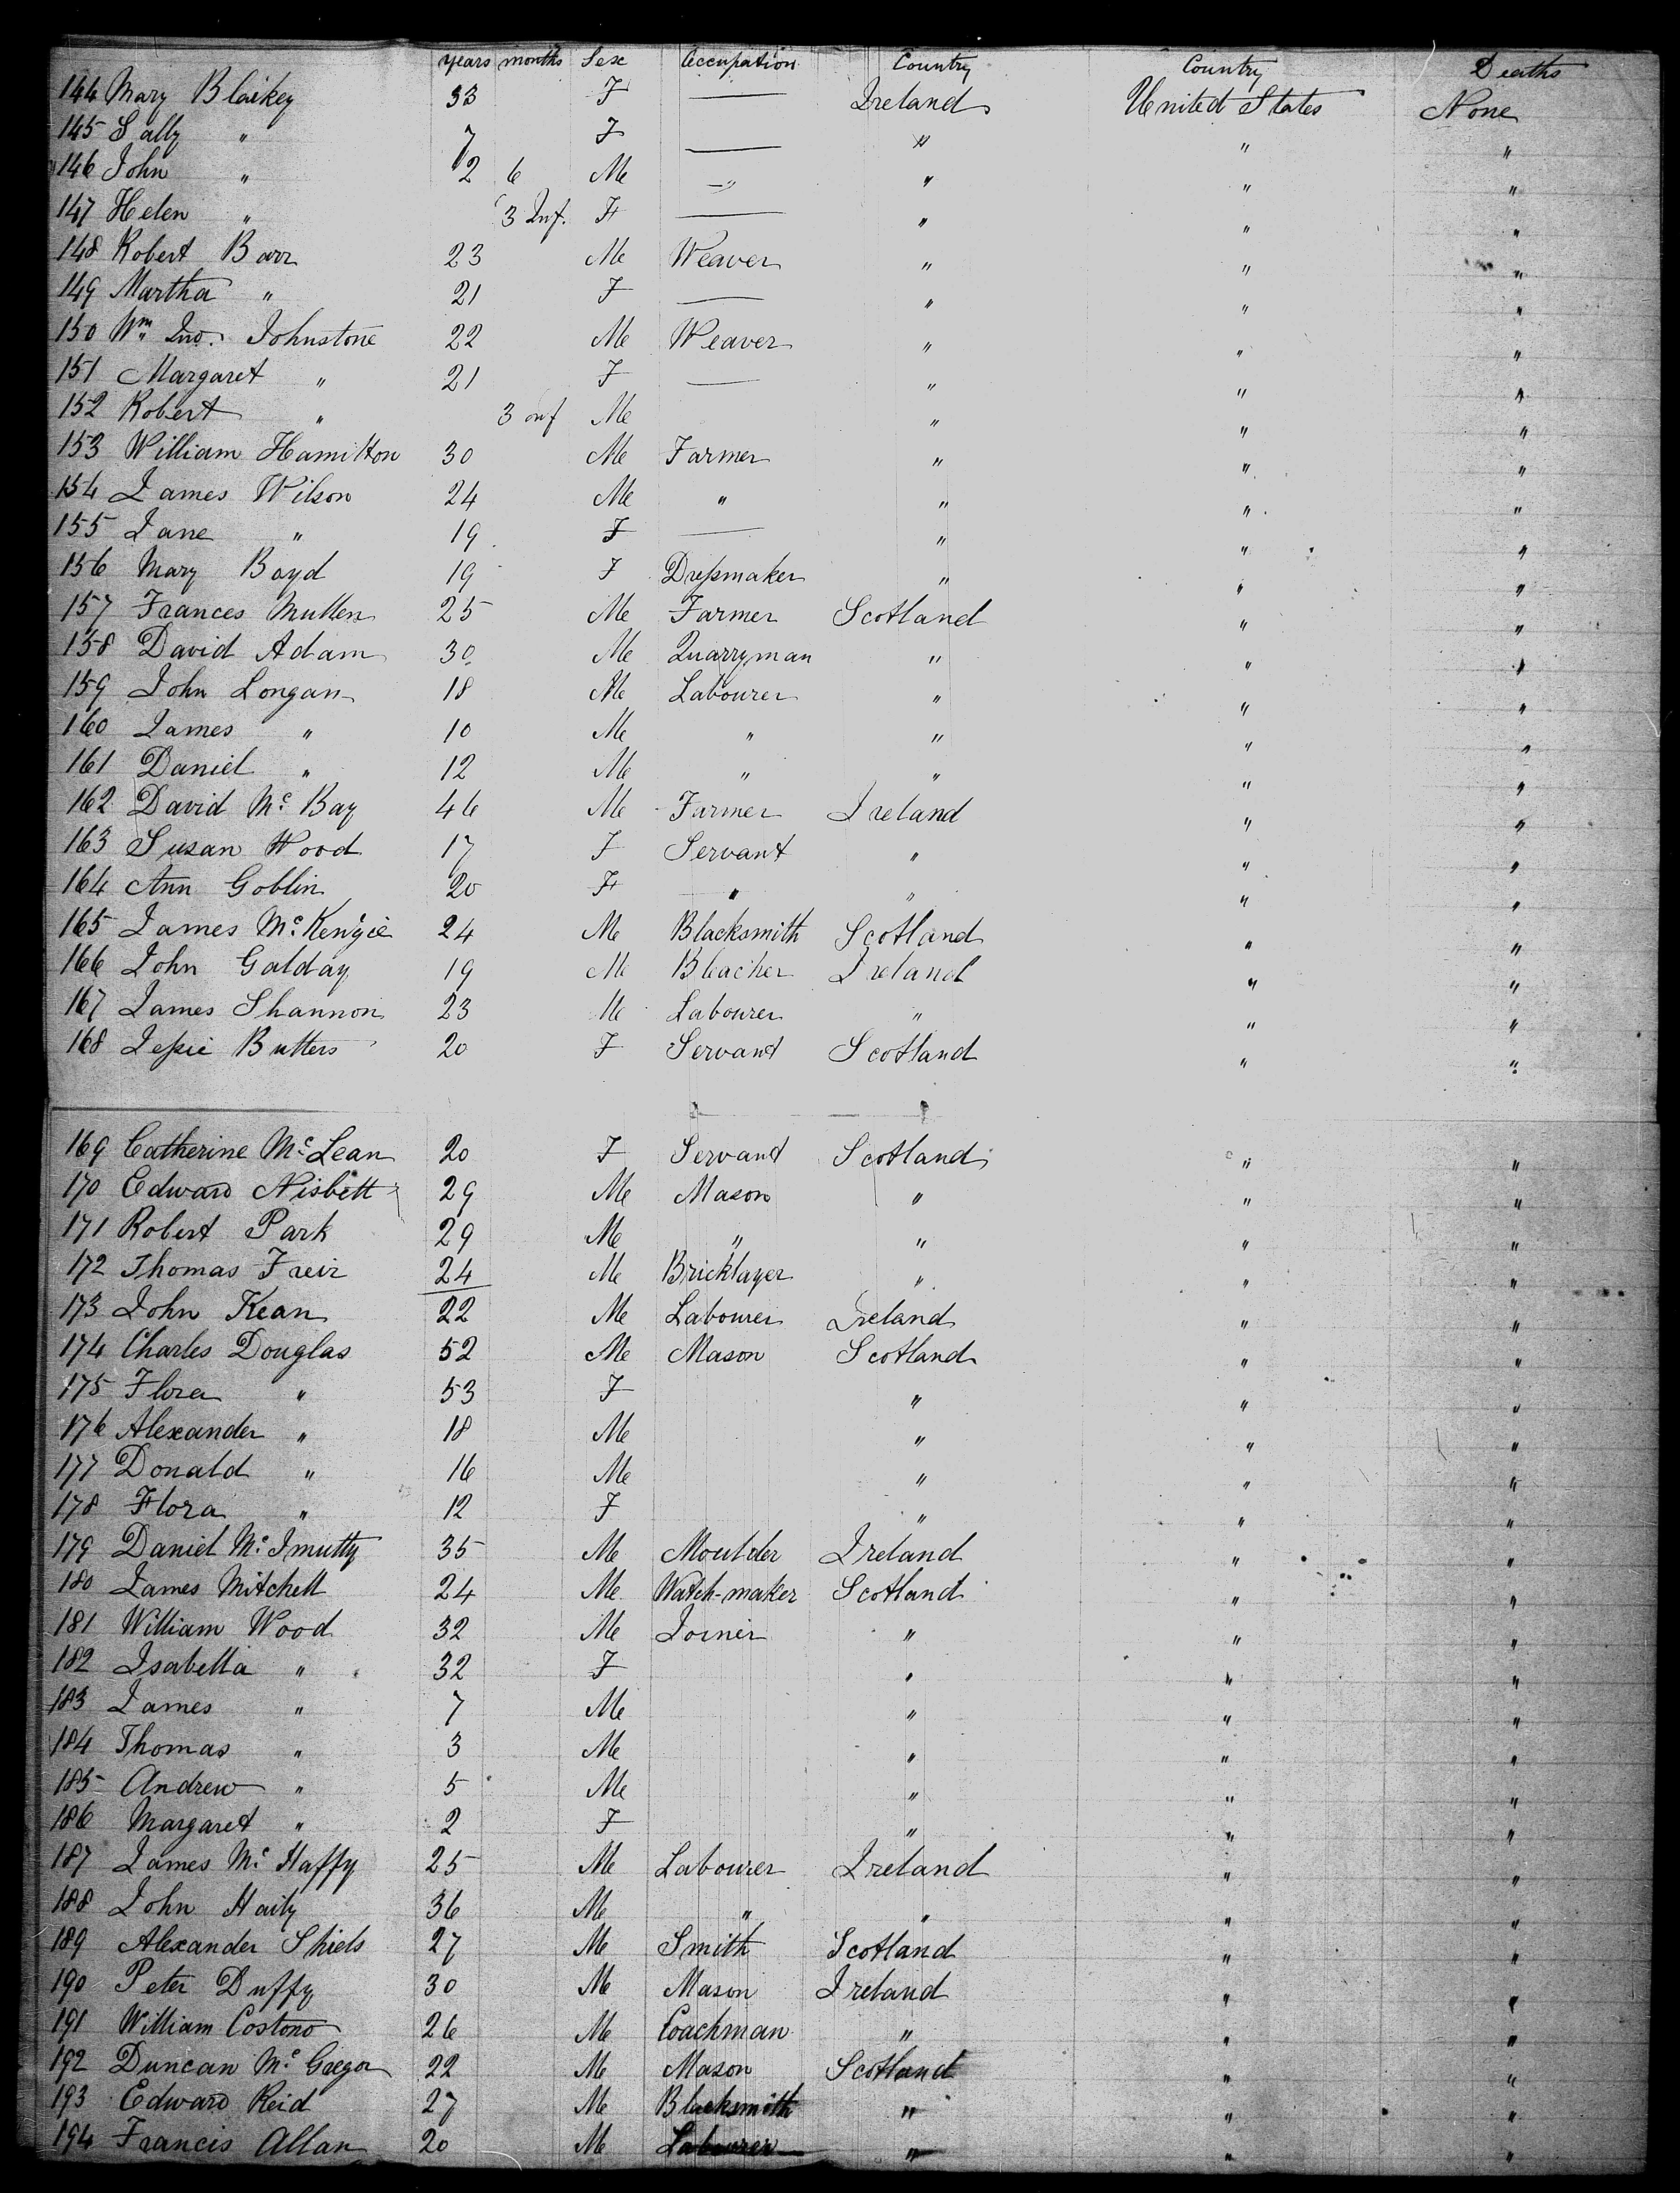 years months Sex Occupation Country Country Deaths
144 Mary Blaikey 33 F — Ireland United States None
145 Sally " 7 F — " " "
146 John " 2 6 Me —"— " " "
147 Helen " 3 Inf. F — " " "
148 Robert Barr 23 Me Weaver " " "
149 Martha " 21 F — " " "
150 Wm Jno. Johnstone 22 Me Weaver " " "
151 Margaret " 21 F — " " "
152 Robert " 3 inf Me " " "
153 William Hamilton 30 Me Farmer " " "
154 James Wilson 24 Me " " " "
155 Jane " 19 F — " " "
156 Mary Boyd 19 F Dressmaker " " "
157 Frances Mullen 25 Me Farmer Scotland " "
158 David Adam 30 Me Quarryman " " "
159 John Longan 18 Me Labourer " " "
160 James " 10 Me " " " "
161 Daniel " 12 Me " " " "
162 David Mc Bay 46 Me Farmer Ireland " "
163 Susan Wood 17 F Servant " " "
164 Ann Goblin 20 F " " " "
165 James McKenzie 24 Me Blacksmith Scotland " "
166 John Galday 19 Me Bleacher Ireland " "
167 James Shannon 23 Me Labourer " " "
168 Jessie Butters 20 F Servant Scotland " "
169 Catherine McLean 20 F Servant Scotland " "
170 Edward Nisbett 29 Me Mason " " "
171 Robert Park 29 Me " " " "
172 Thomas Freir 24 Me Bricklayer " " "
173 John Kean 22 Me Labourer Ireland " "
174 Charles Douglas 52 Me Mason Scotland " "
175 Flora " 53 F " " "
176 Alexander " 18 Me " " "
177 Donald " 16 Me " " "
178 Flora " 12 F " " "
179 Daniel Mc Imutty 35 Me Moulder Ireland " "
180 James Mitchell 24 Me Watch-maker Scotland " "
181 William Wood 32 Me Joiner " " "
182 Isabella " 32 F " " "
183 James " 7 Me " " "
184 Thomas " 3 Me " " "
185 Andrew " 5 Me " " "
186 Margaret " 2 F " " "
187 James Mc Haffy 25 Me Labourer Ireland " "
188 John Haily 36 Me " " " "
189 Alexander Shiels 27 Me Smith Scotland " "
190 Peter Duffy 30 Me Mason Ireland " "
191 William Costono 26 Me Coachman " " "
192 Duncan Mc Gregor 22 Me Mason Scotland " "
193 Edward Reid 27 Me Blacksmith " " "
194 Francis Allan 20 Me Labourer " " "